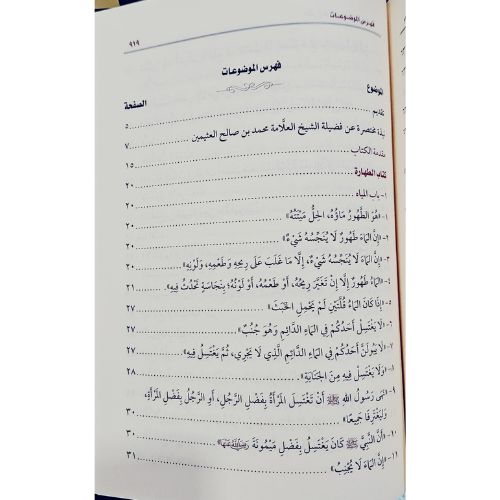 فهرس الموضوعات
٩١٩
فهرس الموضوعات
الموضوع الصفحة
تقديم ٥
نبذة مختصرة عن فضيلة الشيخ العلَّامة محمد بن صالح العثيمين ٧
مقدمة الكتاب ١٥
كتاب الطهارة ٢٠
١- باب المياه ٢٠
١- «هُوَ الطَّهُورُ مَاؤُهُ، الحِلُّ مَيْتَتُهُ» ٢٠
٢- «إِنَّ المَاءَ طَهُورٌ لَا يُنَجِّسُهُ شَيْءٌ» ٢٠
٣- «إِنَّ المَاءَ لَا يُنَجِّسُهُ شَيْءٌ، إِلَّا مَا غَلَبَ عَلَى رِيحِهِ وَطَعْمِهِ، وَلَوْنِهِ» ٢٠
٤- «المَاءُ طَهُورٌ إِلَّا إِنْ تَغَيَّرَ رِيحُهُ، أَوْ طَعْمُهُ، أَوْ لَوْنُهُ؛ بِنَجَاسَةٍ تَحْدُثُ فِيهِ» ٢١
٥- «إِذَا كَانَ المَاءُ قُلَّتَيْنِ لَمْ يَحْمِلِ الخَبَثَ» ٢٧
٦- «لَا يَغْتَسِلْ أَحَدُكُمْ فِي المَاءِ الدَّائِمِ وَهُوَ جُنُبٌ» ٢٧
٧- «لَا يَبُولَنَّ أَحَدُكُمْ فِي المَاءِ الدَّائِمِ الَّذِي لَا يَجْرِي، ثُمَّ يَغْتَسِلُ فِيهِ» ٢٧
٨- «وَلَا يَغْتَسِلْ فِيهِ مِنَ الجَنَابَةِ» ٢٨
٩- نَهَى رَسُولُ اللهِ ﷺ أَنْ تَغْتَسِلَ المَرْأَةُ بِفَضْلِ الرَّجُلِ، أَوِ الرَّجُلُ بِفَضْلِ المَرْأَةِ،
وَلْيَغْتَرِفَا جَمِيعًا» ٣٠
١٠- «أَنَّ النَّبِيَّ ﷺ كَانَ يَغْتَسِلُ بِفَضْلِ مَيْمُونَةَ رَضِيَ اللهُ عَنْهَا» ٣٠
١١- «إِنَّ المَاءَ لَا يُجْنِبُ» ٣١